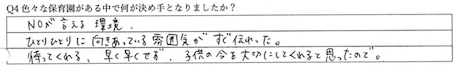 Q4 色々な保育園がある中で何が決め手となりましたか？
NOが言える環境。
ひとりひとりに向きあっている雰囲気がすぐ伝わった。
待ってくれる、早く早くせず、子供の今を大切にしてくれると思ったので。